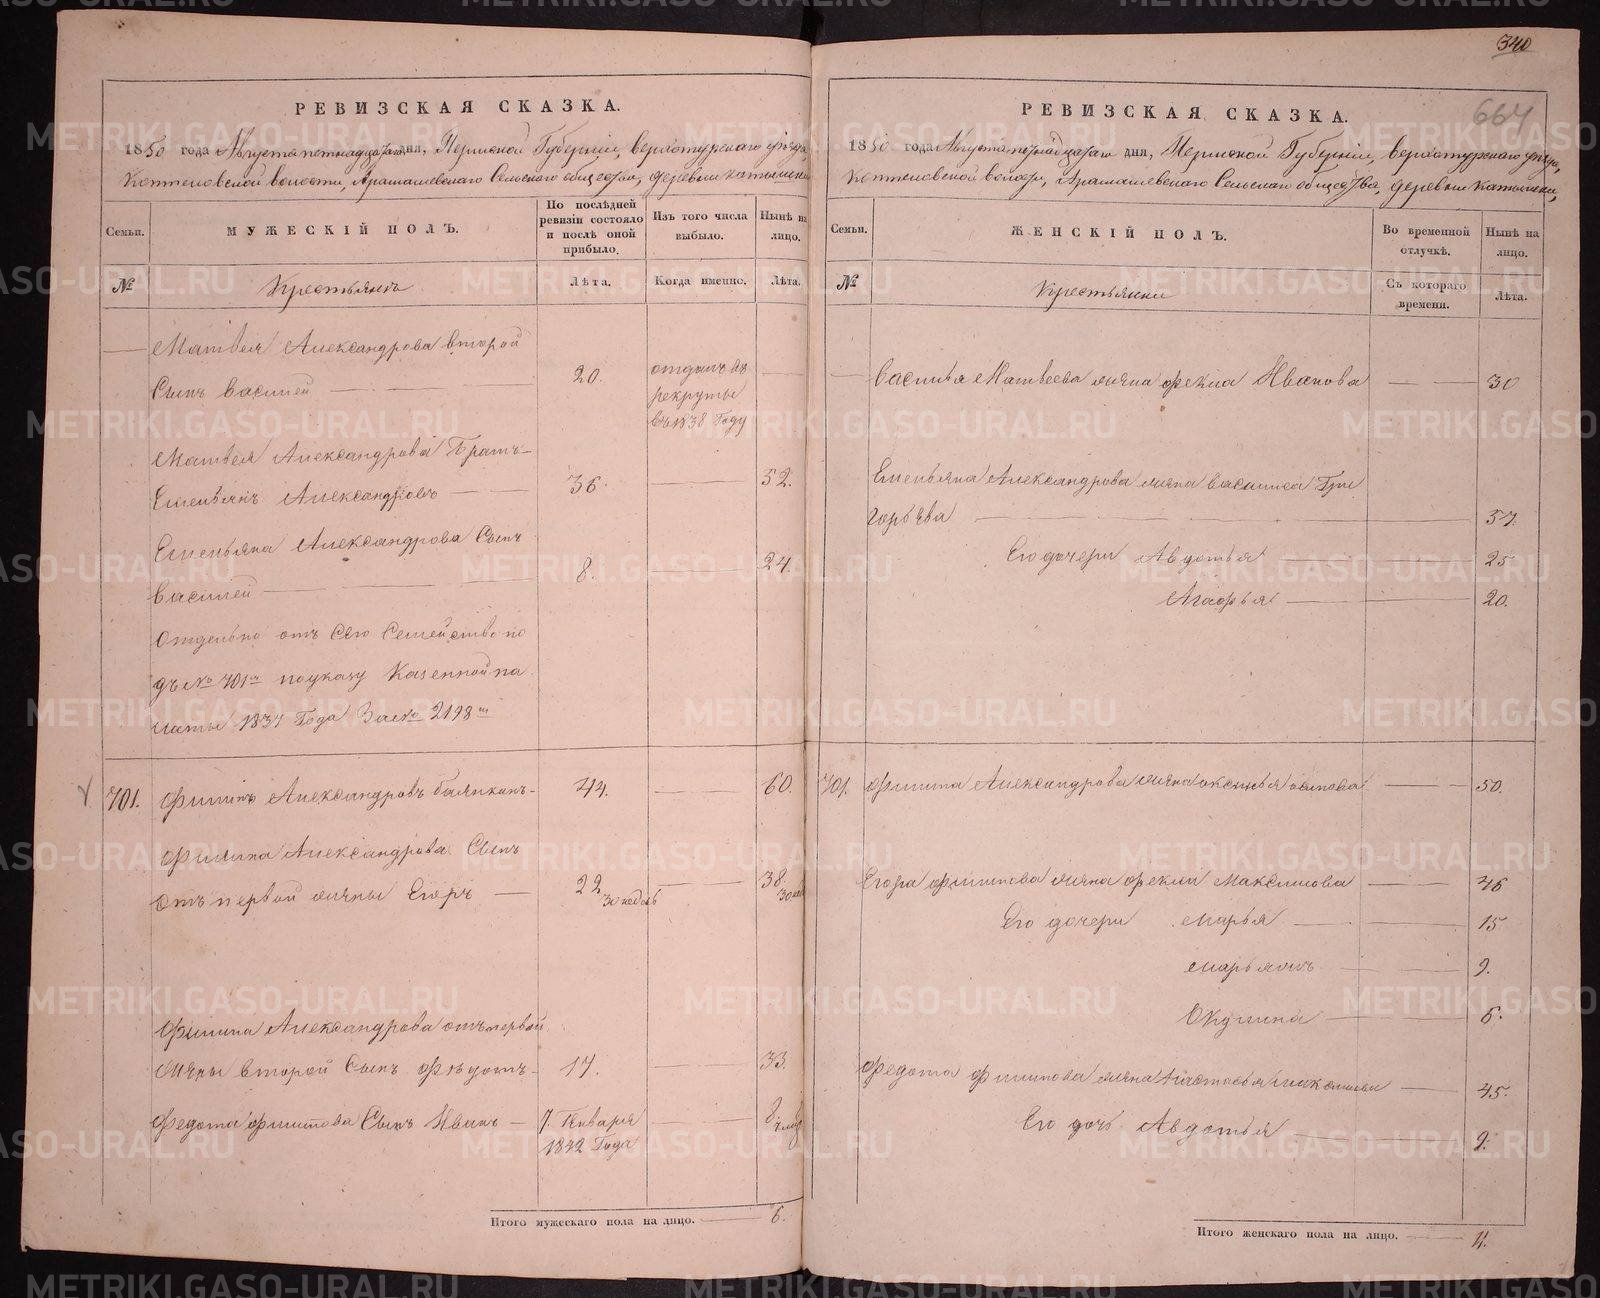 340
664
РЕВИЗСКАЯ СКАЗКА.
1850 года Августа пятнадцатаго дня, Пермской Губернии, верхотурскаго уезда,
Коптеловской волости, Арамашевскаго Сельскаго общества, деревни катышки
Семьи.
МУЖЕСКІЙ ПОЛЪ.
По послѣдней ревизіи состояло и послѣ оной прибыло.
Изъ того числа выбыло.
Нынѣ на лицо.
№
Крестьянъ
Лѣта.
Когда именно.
Лѣта.
Матвея Александрова второй
Сынъ василей 20. отданъ въ рекруты въ 1838 Году
Матвея Александрова Братъ
Емельянъ Александровъ 36. 52.
Емельяна Александрова Сынъ
василей 8. 24.
Отдельно отъ Сего Семейство по
дъ № 701м по указу Казенной па
латы 1837 Года За № 2198м
701. Филипъ Александровъ 44. 60.
Филипа Александрова Сынъ
отъ первой жены Егоръ 22 38.
Филипа Александрова отъ первой
жены второй Сынъ Федотъ 17. 33.
Федота филипова Сынъ Иванъ 7. Генваря 1842 Года 8
Итого мужескаго пола на лицо. 6.
РЕВИЗСКАЯ СКАЗКА.
1850 года Августа пятнадцатаго дня, Пермской Губернии, верхотурскаго уезда,
Коптеловской волости, Арамашевскаго Сельскаго общества, деревни катышки,
Семьи.
ЖЕНСКІЙ ПОЛЪ.
Во временной отлучкѣ.
Нынѣ на лицо.
№
Крестьянки
Съ котораго времени.
Лѣта.
василья Матвеева жена фекла Иванова 30
Емельяна Александрова жена василиса Гри
горьева 57.
Его дочери Авдотья 25
Агафья 20.
701. Филипа Александрова жена оксинья осипова 50.
Егора филипова жена фекла Максимова 46
Его дочери Марья 15
Марья 9.
Окулина 6.
Федота Филипова жена Настасья максимова 45.
Его дочь Авдотья 9.
Итого женскаго пола на лицо. 11.
METRIKI.GASO-URAL.RU